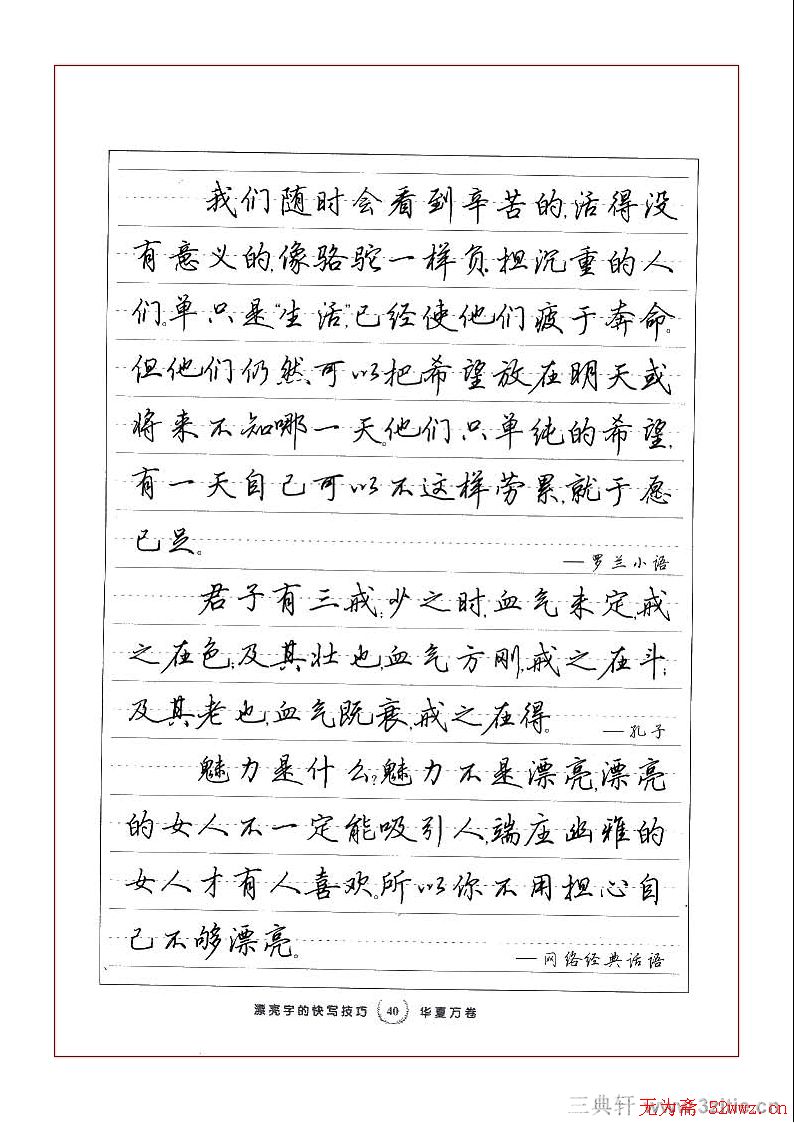 我们随时会看到辛苦的,活得没
有意义的,像骆驼一样负担沉重的人
们。单只是“生活”,已经使他们疲于奔命。
但他们仍然可以把希望放在明天或
将来不知哪一天。他们只单纯的希望,
有一天自己可以不这样劳累,就于愿
已足。
—罗兰小语
君子有三戒:少之时,血气未定,戒
之在色;及其壮也,血气方刚,戒之在斗;
及其老也,血气既衰,戒之在得。
—孔子
魅力是什么?魅力不是漂亮,漂亮
的女人不一定能吸引人,端庄幽雅的
女人才有人喜欢。所以你不用担心自
己不够漂亮。
—网络经典话语
漂亮字的快写技巧 40 华夏万卷
三典轩
无为斋 52wwz.cn